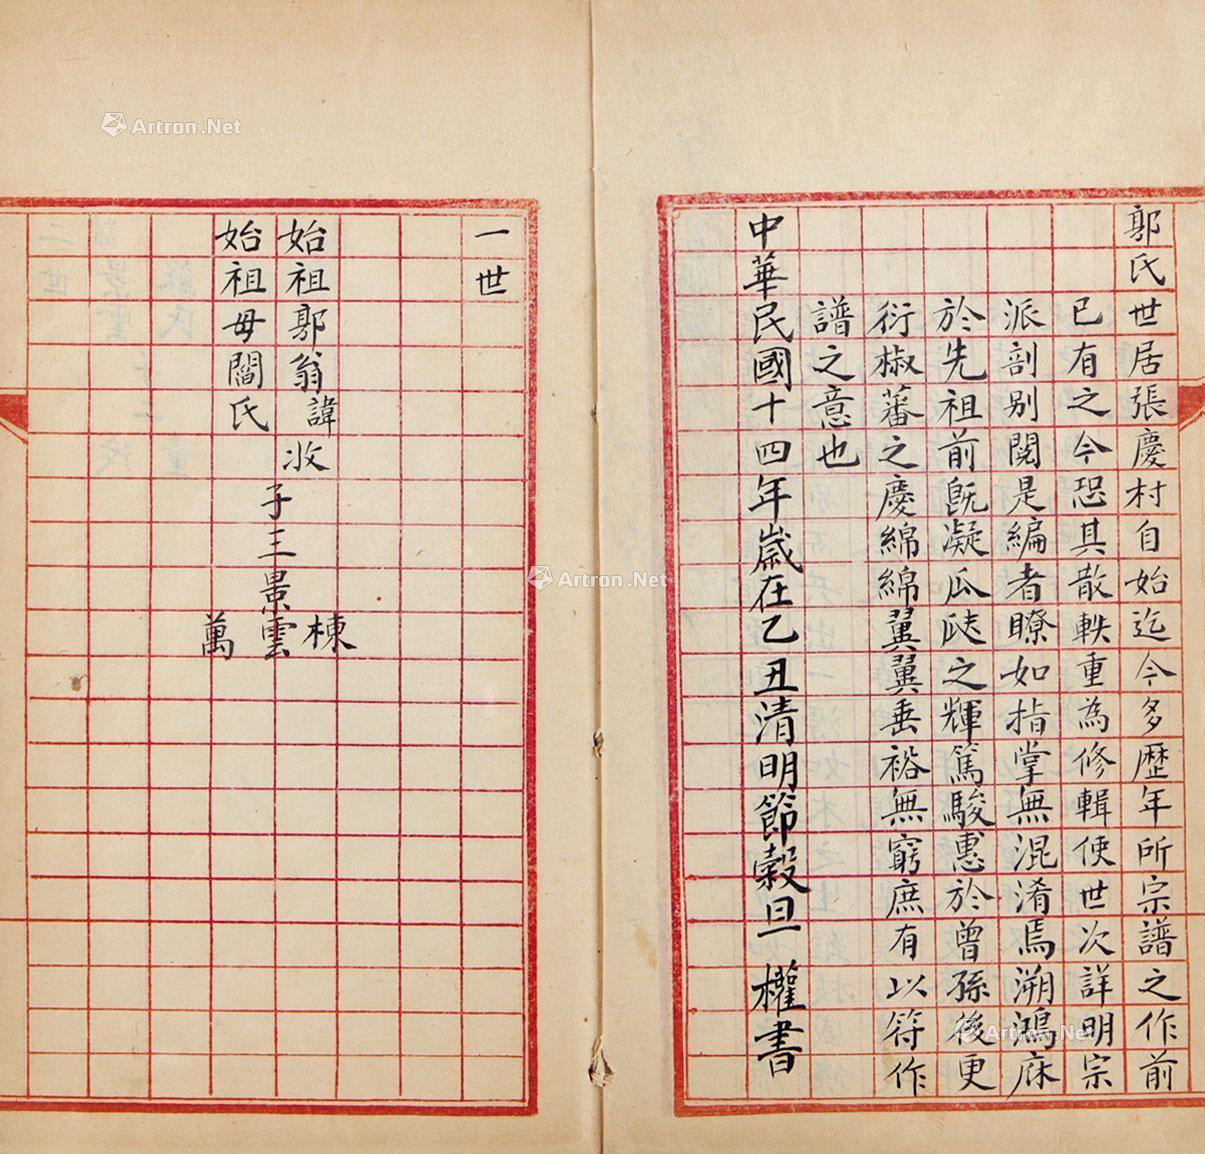 郭氏世居張慶村自始迄今多歷年所宗譜之作前
已有之今恐其散軼重為修輯使世次詳明宗
派剖别閱是編者瞭如指掌無混淆焉溯鴻庥
於先祖前既凝瓜瓞之輝篤駿惠於曾孫後更
衍椒蕃之慶綿綿翼翼垂裕無窮庶有以符作
譜之意也
中華民國十四年歲在乙丑清明節穀旦 權書
一世
始祖郭翁諱汝
始祖母閻氏
子三景
棟
雲
萬
Artron.Net
Artron.Net
Artron.Net